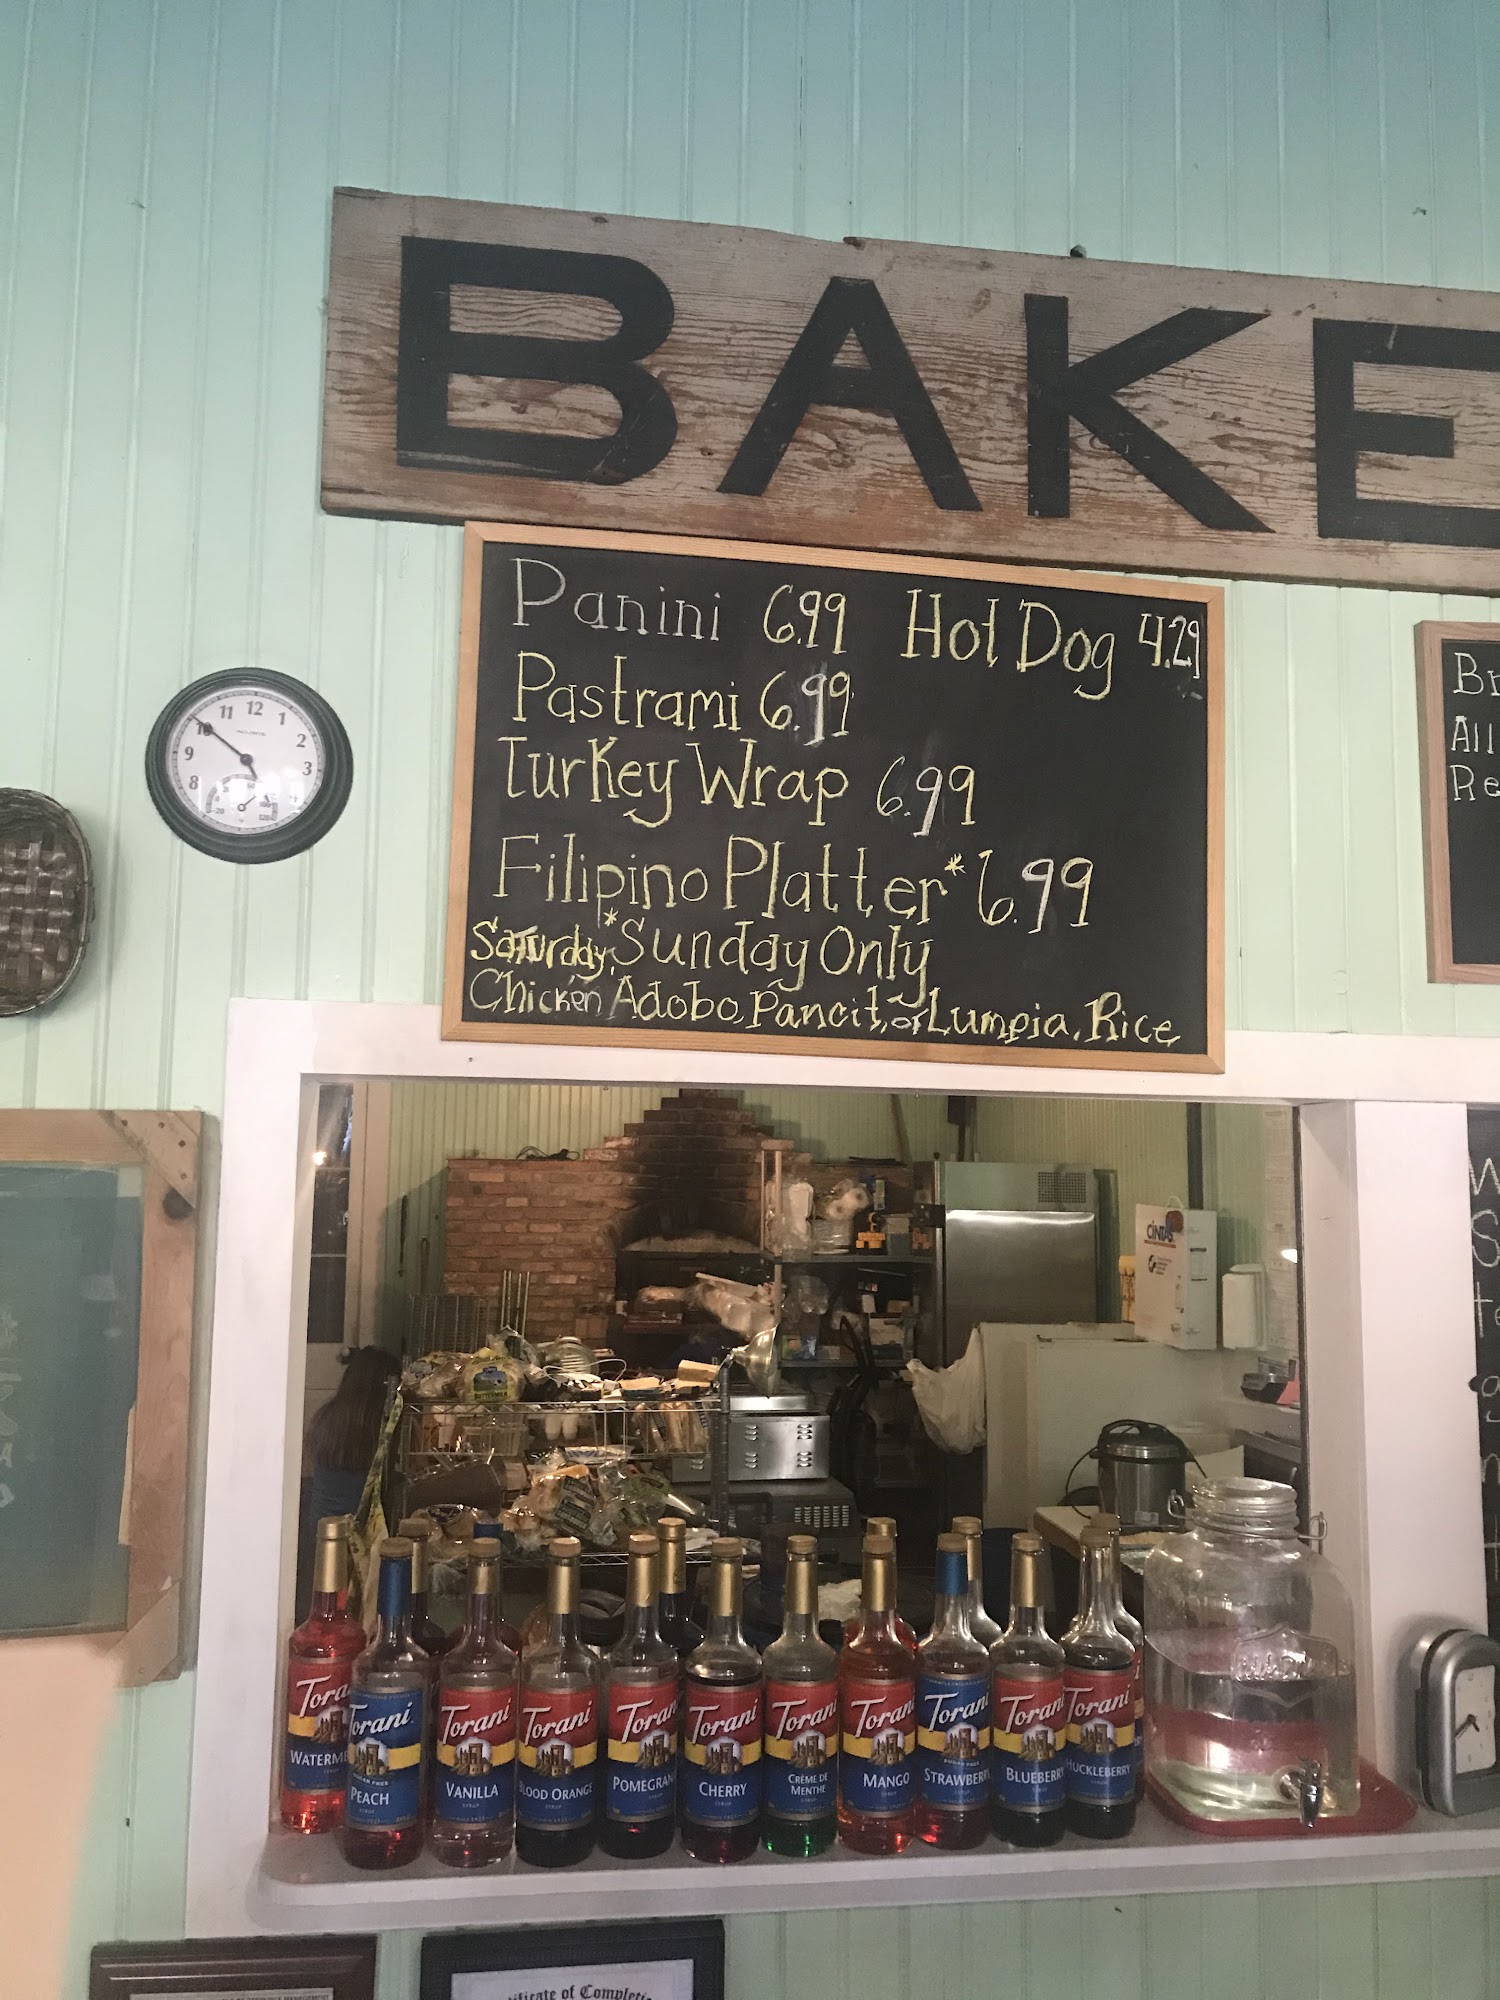 BAKE
Panini 6.99 Hot Dog 4.29
Pastrami 6.99
Turkey Wrap 6.99
Filipino Platter* 6.99
Saturday, *Sunday Only
Chicken Adobo, Pancit, or Lumpia, Rice
11 12 1
10 2
9 3
8
Br
All
Re
CINTAS
Torani
WATERME
Torani
SUGAR FREE
PEACH
SYRUP
Torani
VANILLA
SYRUP
Torani
BLOOD ORANGE
SYRUP
Torani
POMEGRAN
Torani
CHERRY
SYRUP
Torani
CRÈME DE
MENTHE
SYRUP
Torani
MANGO
SYRUP
Torani
SUGAR FREE
STRAWBERRY
SYRUP
Torani
BLUEBERRY
SYRUP
Torani
HUCKLEBERRY
SYRUP
tificate of Completi